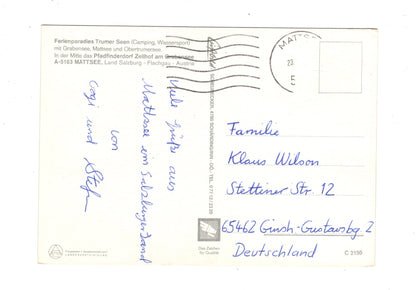 Ferienparadies Trumer Seen (Camping, Wassersport)
mit Grabensee, Mattsee und Obertrumersee.
In der Mitte das Pfadfinderdorf Zellhof am Grabensee
A-5163 MATTSEE, Land Salzburg - Flachgau - Austria
Viele Grüße aus
Mattsee im Salzburgerland
von
Gogi und Stefan
MATTSEE
23
5
Familie
Klaus Wilson
Stettiner Str. 12
65462 Ginsh-Gustavsbg 2
Deutschland
Das Zeichen
für Qualität
C 3150